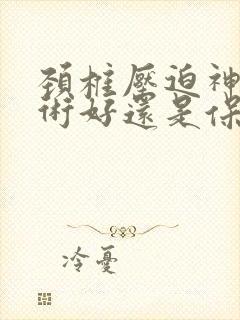 頚椎壓迫神
術好還是保
冷憂